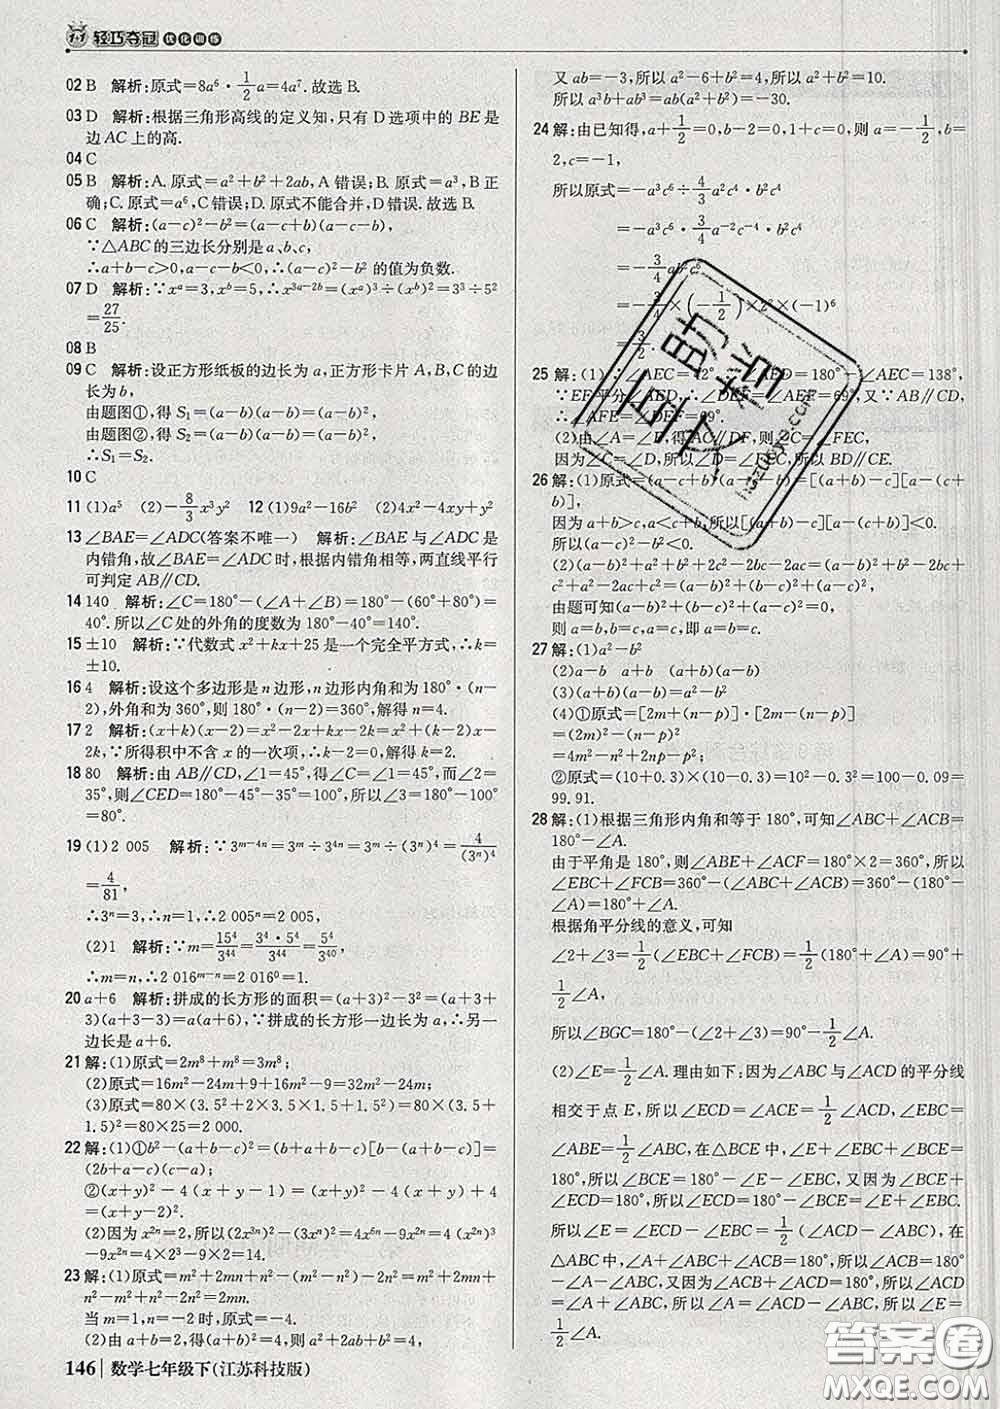 轻巧夺冠 优化训练
02 B 解析:原式=8a⁶·1/2a=4a⁷.故选B.
03 D 解析:根据三角形高线的定义知,只有D选项中的BE是
边AC上的高.
04 C
05 B 解析:A.原式=a²+b²+2ab,A错误;B.原式=a³,B正
确;C.原式=a⁶,C错误;D.原式不能合并,D错误.故选B.
06 C 解析:(a-c)²-b²=(a-c+b)(a-c-b),
∵△ABC的三边长分别是a、b、c,
∴a+b-c>0,a-c-b<0,∴(a-c)²-b²的值为负数.
07 D 解析:∵xᵃ=3,xᵇ=5,∴x³ᵃ⁻²ᵇ=(xᵃ)³÷(xᵇ)²=3³÷5²
=27/25.
08 B
09 C 解析:设正方形纸板的边长为a,正方形卡片A,B,C的边
长为b,
由题图①,得S₁=(a-b)(a-b)=(a-b)²,
由题图②,得S₂=(a-b)(a-b)=(a-b)²,
∴S₁=S₂.
10 C
11 (1)a⁵ (2)-8/3x³y² 12 (1)9a²-16b² (2)4x²-4xy+y²
13 ∠BAE=∠ADC(答案不唯一) 解析:∠BAE与∠ADC是
内错角,故∠BAE=∠ADC时,内错角相等,两直线平行
可判定AB∥CD.
14 140 解析:∠C=180°-(∠A+∠B)=180°-(60°+80°)=
40°.所以∠C处的外角的度数为180°-40°=140°.
15 ±10 解析:∵代数式x²+kx+25是一个完全平方式,∴k=
±10.
16 4 解析:设这个多边形是n边形,n边形内角和为180°·(n-
2),外角和为360°,则180°·(n-2)=360°,解得n=4.
17 2 解析:(x+k)(x-2)=x²-2x+kx-2k=x²+(k-2)x-
2k,∵所得积中不含x的一次项,∴k-2=0,解得k=2.
18 80 解析:由AB∥CD,∠1=45°,得∠C=∠1=45°,而∠2=
35°,则∠CED=180°-45°-35°=100°,所以∠3=180°-100°
=80°.
19 (1)2 005 解析:∵3ᵐ⁻⁴ⁿ=3ᵐ÷3⁴ⁿ=3ᵐ÷(3ⁿ)⁴=4/(3ⁿ)⁴
=4/81,
∴3ⁿ=3,∴n=1,∴2 005ⁿ=2 005.
(2)1 解析:∵m=15⁴/3⁴⁴=3⁴·5⁴/3⁴⁴=5⁴/3⁴⁰,
∴m=n,∴2 016ᵐ⁻ⁿ=2 016⁰=1.
20 a+6 解析:拼成的长方形的面积=(a+3)²-3²=(a+3+
3)(a+3-3)=a(a+6),∵拼成的长方形一边长为a,∴另一
边长是a+6.
21 解:(1)原式=2m⁸+m⁸=3m⁸;
(2)原式=16m²-24m+9+24m=16m²+9;
(3)原式=80×(3.5²+2×3.5×1.5+1.5²)=80×(3.5+
1.5)²=80×25=2 000.
22 解:(1)①b²-(a+b-c)²=(b+a+b-c)[b-(a+b-c)]=
(2b+a-c)(c-a);
②(x+y)²-4(x+y-1)=(x+y)²-4(x+y)+4
=(x+y-2)²;
(2)因为x²ⁿ=2,所以(2x³ⁿ)²-(3xⁿ)²=4x⁶ⁿ-9x²ⁿ=4(x²ⁿ)³
-9x²ⁿ=4×2³-9×2=14.
23 解:(1)原式=m²+2mn+n²-(m²-2mn+n²)=m²+2mn+
n²-m²+2mn-n²=4mn,
当m=1,n=-2时,原式=-8.
(2)由a+b=2,得(a+b)²=4,即a²+2ab+b²=4,
又ab=-3,所以a²-6+b²=4,所以a²+b²=10.
所以a³b+ab³=ab(a²+b²)=-30.
24 解:由已知得,a+1/2=0,b-2=0,1+c=0,则a=-1/2,b=
2,c=-1.
所以原式=-a³c⁶÷4/3a²c⁴·b²c⁴
=-a³c⁶·3/4a⁻²c⁻⁴·b²c⁴
=-3/4ab²c⁶
=-3/4×(-1/2)×2²×(-1)⁶
=3/2.
25 解:(1)∵∠AEC=42°,∴∠AED=180°-∠AEC=138°,
∵EF平分∠AED,∴∠DEF=∠AEF=69°,又∵AB∥CD,
∴∠AFE=∠DEF=69°.
因为∠C=∠D,所以∠D=∠FEC,所以BD∥CE.
26 解:(1)原式=(a-c+b)(a-c-b)=[(a+b)-c][a-(c+
b)],
因为a+b>c,a<c+b,所以[(a+b)-c][a-(b+c)]<0.
所以(a-c)²-b²<0.
(2)(2)a²+a²+b²+b²+2c²-2ab-2bc-2ac=(a²-2ab+b²)+(b²-2bc+
c²+a²-2ac+c²=(a-b)²+(b-c)²+(a-c)²;
由题可知(a-b)²+(b-c)²+(a-c)²=0,
则a=b,b=c,a=c,即a=b=c.
27 解:(1)a²-b²
(2)a-b a+b (a+b)(a-b)
(3)(a+b)(a-b)=a²-b²
(4)①原式=[2m+(n-p)]·[2m-(n-p)]
=(2m)²-(n-p)²
=4m²-n²+2np-p²;
②原式=(10+0.3)×(10-0.3)=10²-0.3²=100-0.09=
99.91.
28 解:(1)根据三角形内角和等于180°,可知∠ABC+∠ACB=
180°-∠A.
由于平角是180°,则∠ABE+∠ACF=180°×2=360°,所以
∠EBC+∠FCB=360°-(∠ABC+∠ACB)=360°-(180°-
∠A)=180°+∠A.
根据角平分线的意义,可知
∠2+∠3=1/2(∠EBC+∠FCB)=1/2(180°+∠A)=90°+
1/2∠A,
所以∠BGC=180°-(∠2+∠3)=90°-1/2∠A.
(2)∠E=1/2∠A.理由如下:因为∠ABC与∠ACD的平分线
相交于点E,所以∠ECD=∠ACE=1/2∠ACD,∠EBC=
∠ABE=1/2∠ABC,在△BCE中,∠E+∠EBC+∠BCE=
180°,所以∠BCE=180°-∠E-∠EBC,又因为∠BCE+
∠ECD=180°,所以∠ECD=180°-∠BCE=∠E+∠EBC,
所以∠E=∠ECD-∠EBC=1/2(∠ACD-∠ABC),在
△ABC中,∠A+∠ABC+∠ACB=180°,所以∠ACB=180°
-∠A-∠ABC,又因为∠ACD+∠ACB=180°,所以∠ACD
=∠A+∠ABC,所以∠A=∠ACD-∠ABC,所以∠E=
1/2∠A.
146 数学七年级下(江苏科技版)
互助文档
答案圈
MXQE.COM